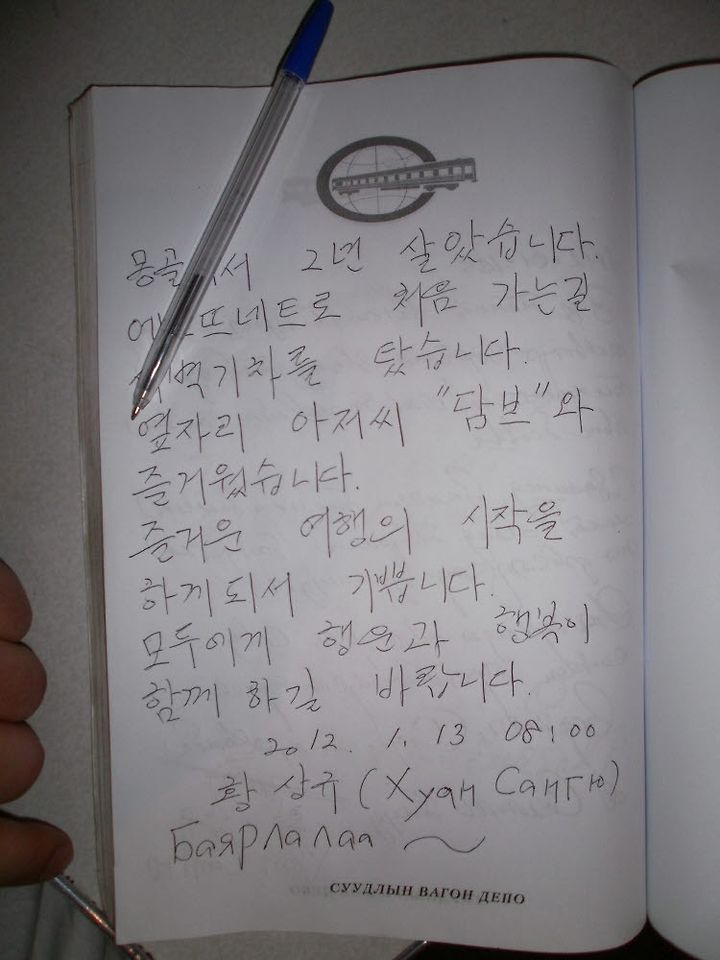 2년 살았습니다.
처음 가는길
탔습니다.
옆자리 아저씨 "담브"와
즐거웠습니다.
즐거운 여행의 시작을
하게되서 기쁩니다.
모두에게 행운과 행복이
함께 하길 바랍니다.
2012. 1. 13 08:00
황 상규 (Хуан Сангю)
Баярлалаа ~
СУУДЛЫН ВАГОН ДЕПО